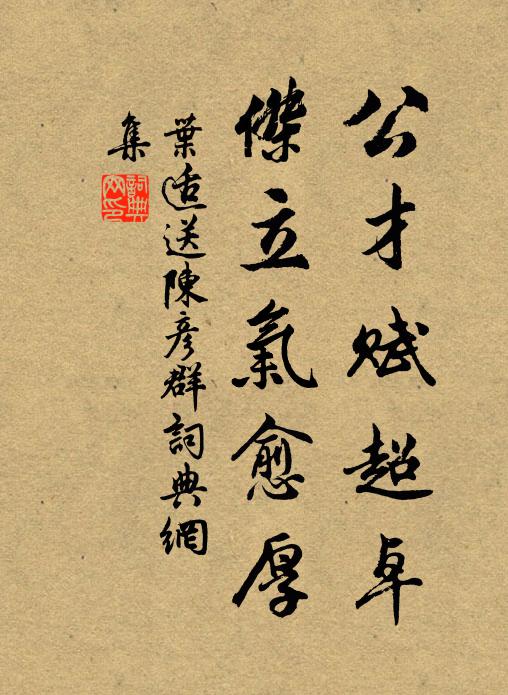 公才賦超卓
傑立氣愈厚
葉适送陳彥群詞典網
集
詞典
网印